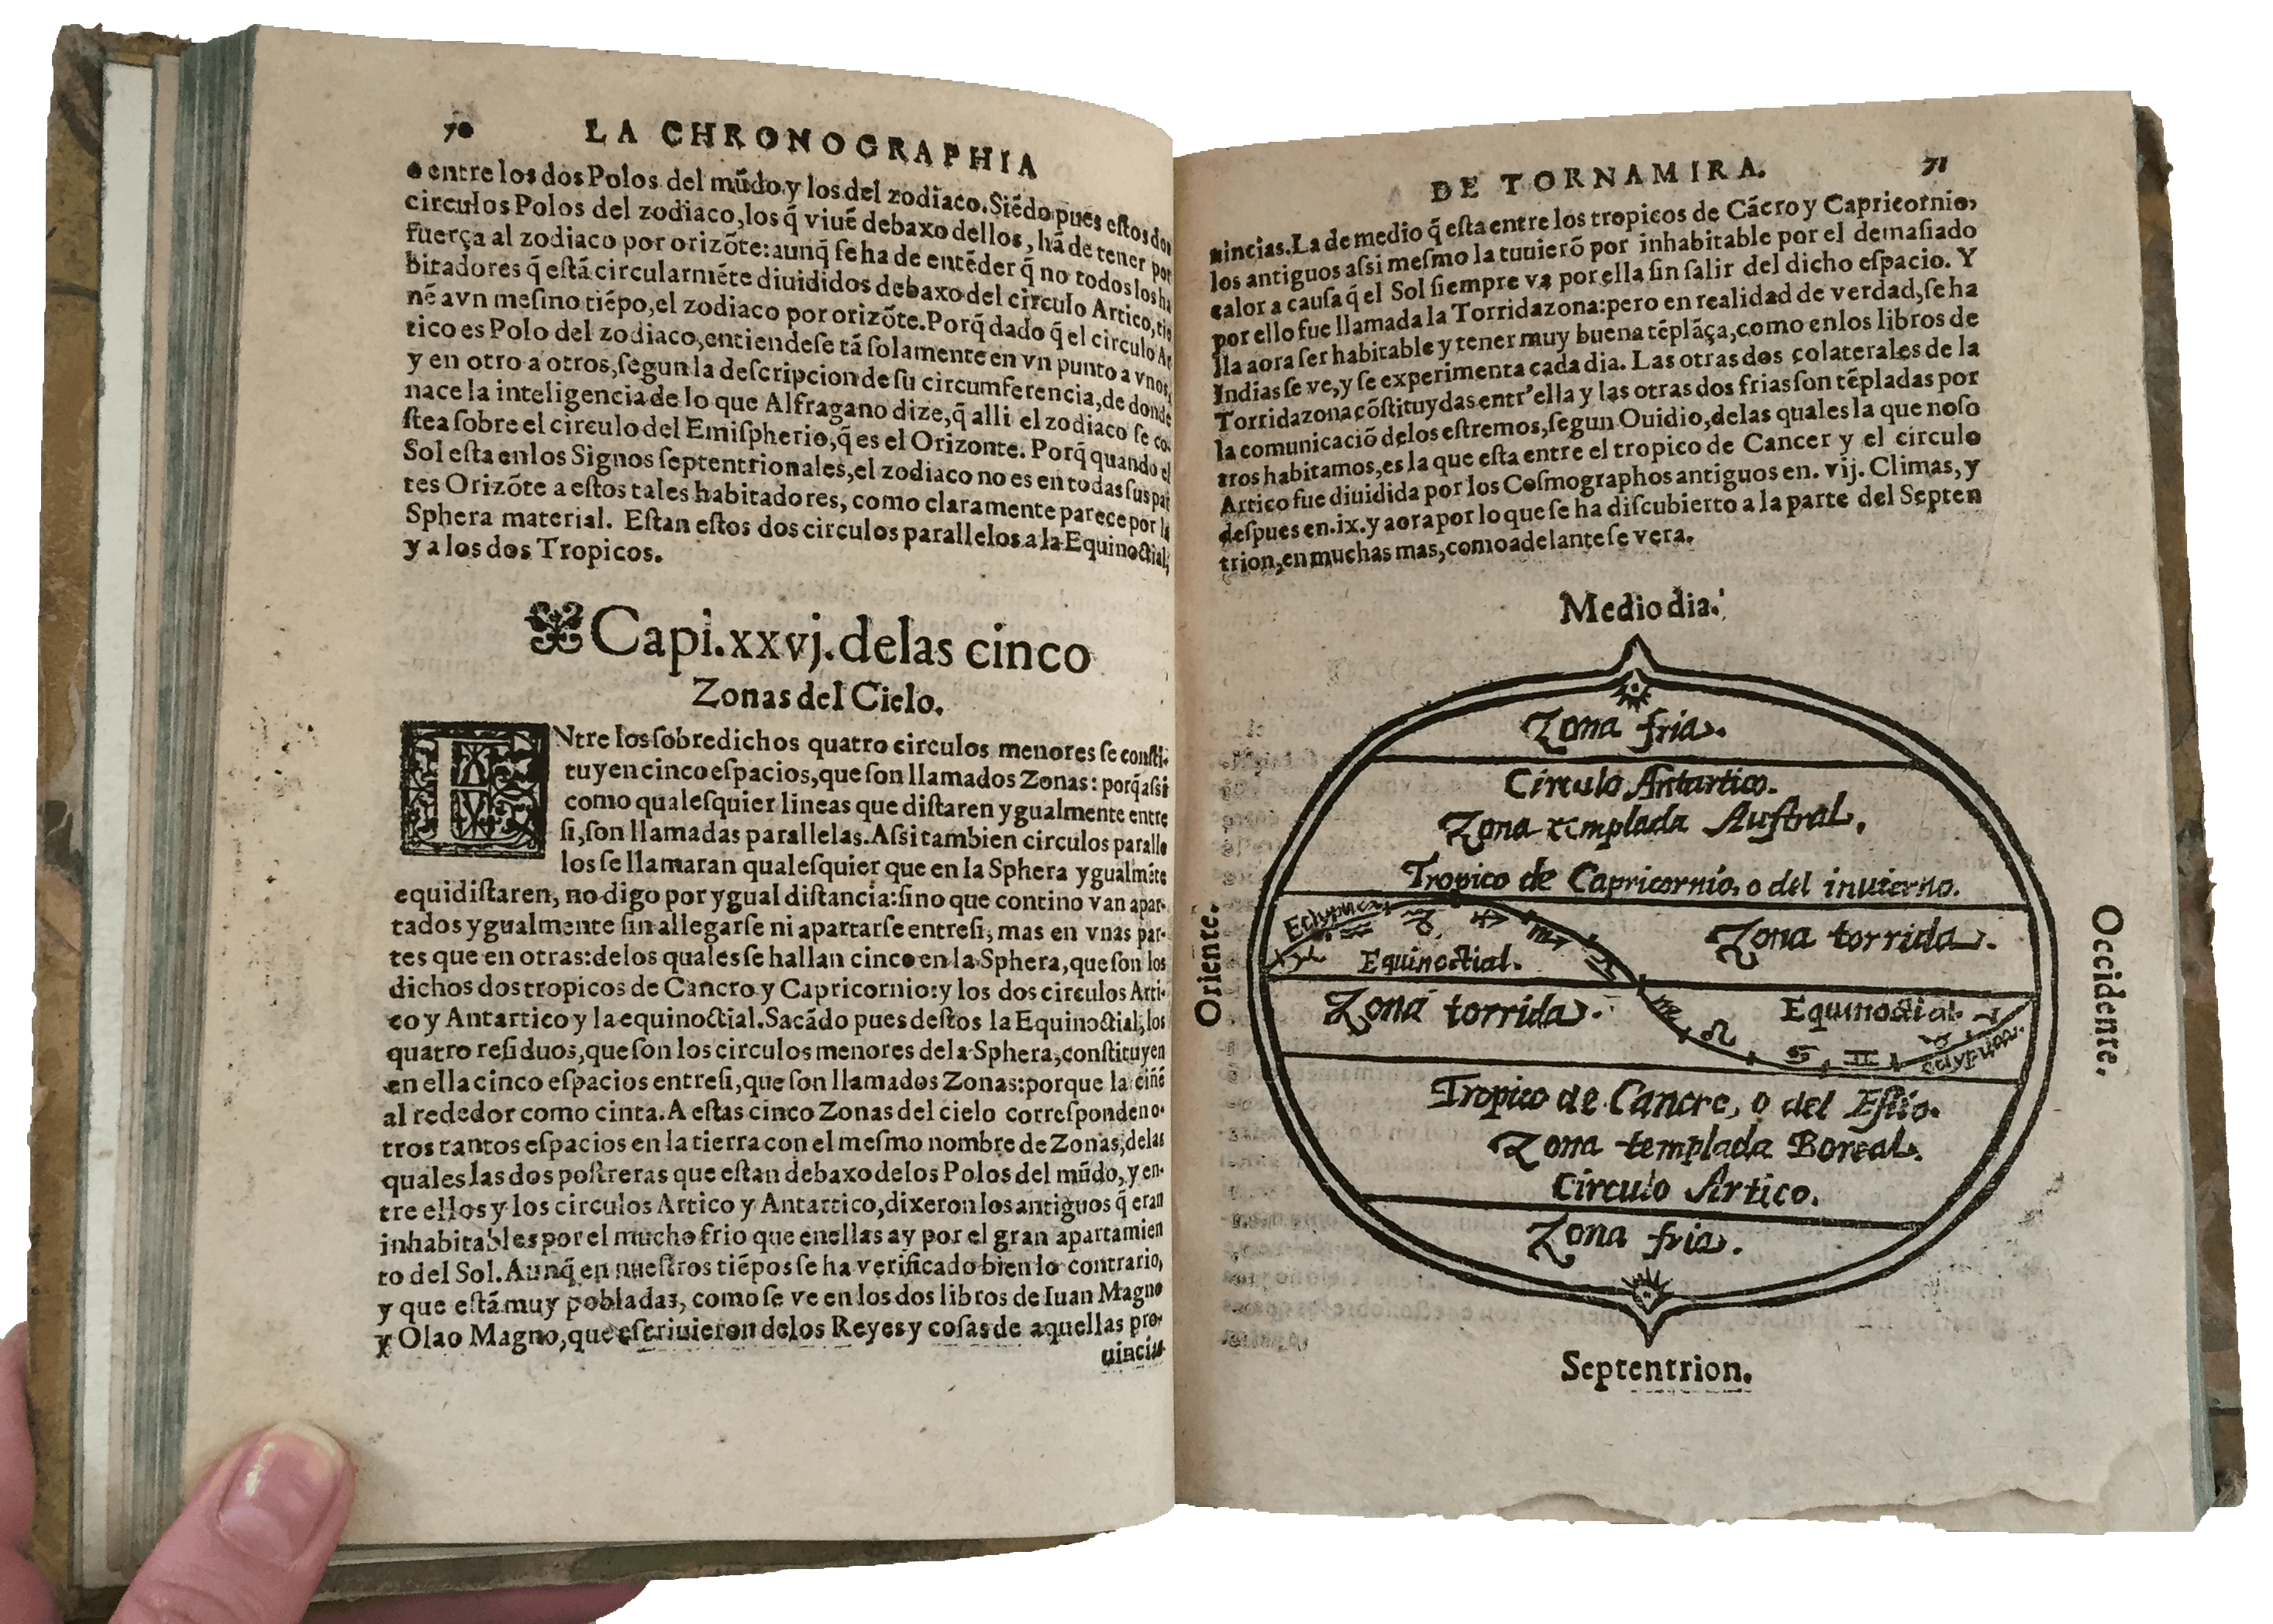 70 LA CHRONOGRAPHIA
entre los dos Polos del mũdo y los del zodiaco. Siẽdo pues eſtos dos
circulos Polos del zodiaco, los q̃ viuẽ debaxo dellos, hã de tener por
fuerça al zodiaco por orizõte: aunq̃ ſe ha de entẽder q̃ no todos los ha
bitadores q̃ eſtã circularmẽte diuididos debaxo del circulo Artico, tie
nẽ avn meſmo tiẽpo, el zodiaco por orizõte. Porq̃ dado q̃ el circulo Ar
tico es Polo del zodiaco, entiendeſe tã ſolamente en vn punto a vnos,
y en otro a otros, ſegun la deſcripcion de ſu circumferencia, de donde
nace la inteligencia de lo que Alfragano dize, q̃ alli el zodiaco ſe co-
ſtea ſobre el circulo del Emiſpherio, q̃ es el Orizonte. Porq̃ quando el
Sol eſta en los Signos ſeptentrionales, el zodiaco no es en todas ſus par
tes Orizõte a eſtos tales habitadores, como claramente parece por la
Sphera material. Eſtan eſtos dos circulos parallelos a la Equinoctial,
y a los dos Tropicos.
Capi. xxvj. delas cinco
Zonas del Cielo.
ENtre los ſobredichos quatro circulos menores ſe conſti-
tuyen cinco eſpacios, que ſon llamados Zonas: porq̃ aſsi
como qualeſquier lineas que diſtaren ygualmente entre
ſi, ſon llamadas parallelas. Aſsi tambien circulos paralle
los ſe llamaran qualeſquier que en la Sphera ygualmẽte
equidiſtaren, no digo por ygual diſtancia: ſino que contino van apar-
tados ygualmente ſin allegarſe ni apartarſe entre ſi, mas en vnas par-
tes que en otras: de los quales ſe hallan cinco en la Sphera, que ſon los
dichos dos tropicos de Cancro y Capricornio: y los dos circulos Arti-
co y Antartico y la equinoctial. Sacãdo pues deſtos la Equinoctial, los
quatro reſiduos, que ſon los circulos menores dela Sphera, conſtituyen
en ella cinco eſpacios entre ſi, que ſon llamados Zonas: porque la ciñẽ
al rededor como cinta. A eſtas cinco Zonas del cielo correſponden o-
tros tantos eſpacios en la tierra con el meſmo nombre de Zonas, delas
quales las dos poſtreras que eſtan debaxo delos Polos del mũdo, y en-
tre ellos y los circulos Artico y Antartico, dixeron los antiguos q̃ eran
inhabitables por el mucho frio que en ellas ay por el gran apartamien
to del Sol. Aunq̃ en nueſtros tiẽpos ſe ha verificado bien lo contrario,
y que eſtã muy pobladas, como ſe ve en los dos libros de Iuan Magno
y Olao Magno, que eſcriuieron delos Reyes y coſas de aquellas pro-
uincias
DE TORNAMIRA. 71
uincias. La de medio q̃ eſta entre los tropicos de Cãcro y Capricornio,
los antiguos aſsi meſmo la tuuierõ por inhabitable por el demaſiado
calor a cauſa q̃ el Sol ſiempre va por ella ſin ſalir del dicho eſpacio. Y
por ello fue llamada la Torridazona: pero en realidad de verdad, ſe ha
lla aora ſer habitable y tener muy buena tẽplãça, como en los libros de
Indias ſe ve, y ſe experimenta cada dia. Las otras dos colaterales de la
Torridazona cõſtituydas entr'ella y las otras dos frias ſon tẽpladas por
la comunicaciõ delos eſtremos, ſegun Ouidio, delas quales la que noſo
tros habitamos, es la que eſta entre el tropico de Cancer y el circulo
Artico fue diuidida por los Coſmographos antiguos en. vij. Climas, y
deſpues en. ix. y aora por lo que ſe ha diſcubierto a la parte del Septen
trion, en muchas mas, como adelante ſe vera.
Medio dia.
Zona fria.
Circulo Antartico.
Zona templada Auſtral.
Tropico de Capricornio, o del inuierno.
Eclyptica
Zona torrida.
Equinoctial.
Oriente.
Occidente.
Zona torrida.
Equinoctial.
Eclyptica.
Tropico de Cancro, o del Eſtio.
Zona templada Boreal.
Circulo Artico.
Zona fria.
Septentrion.